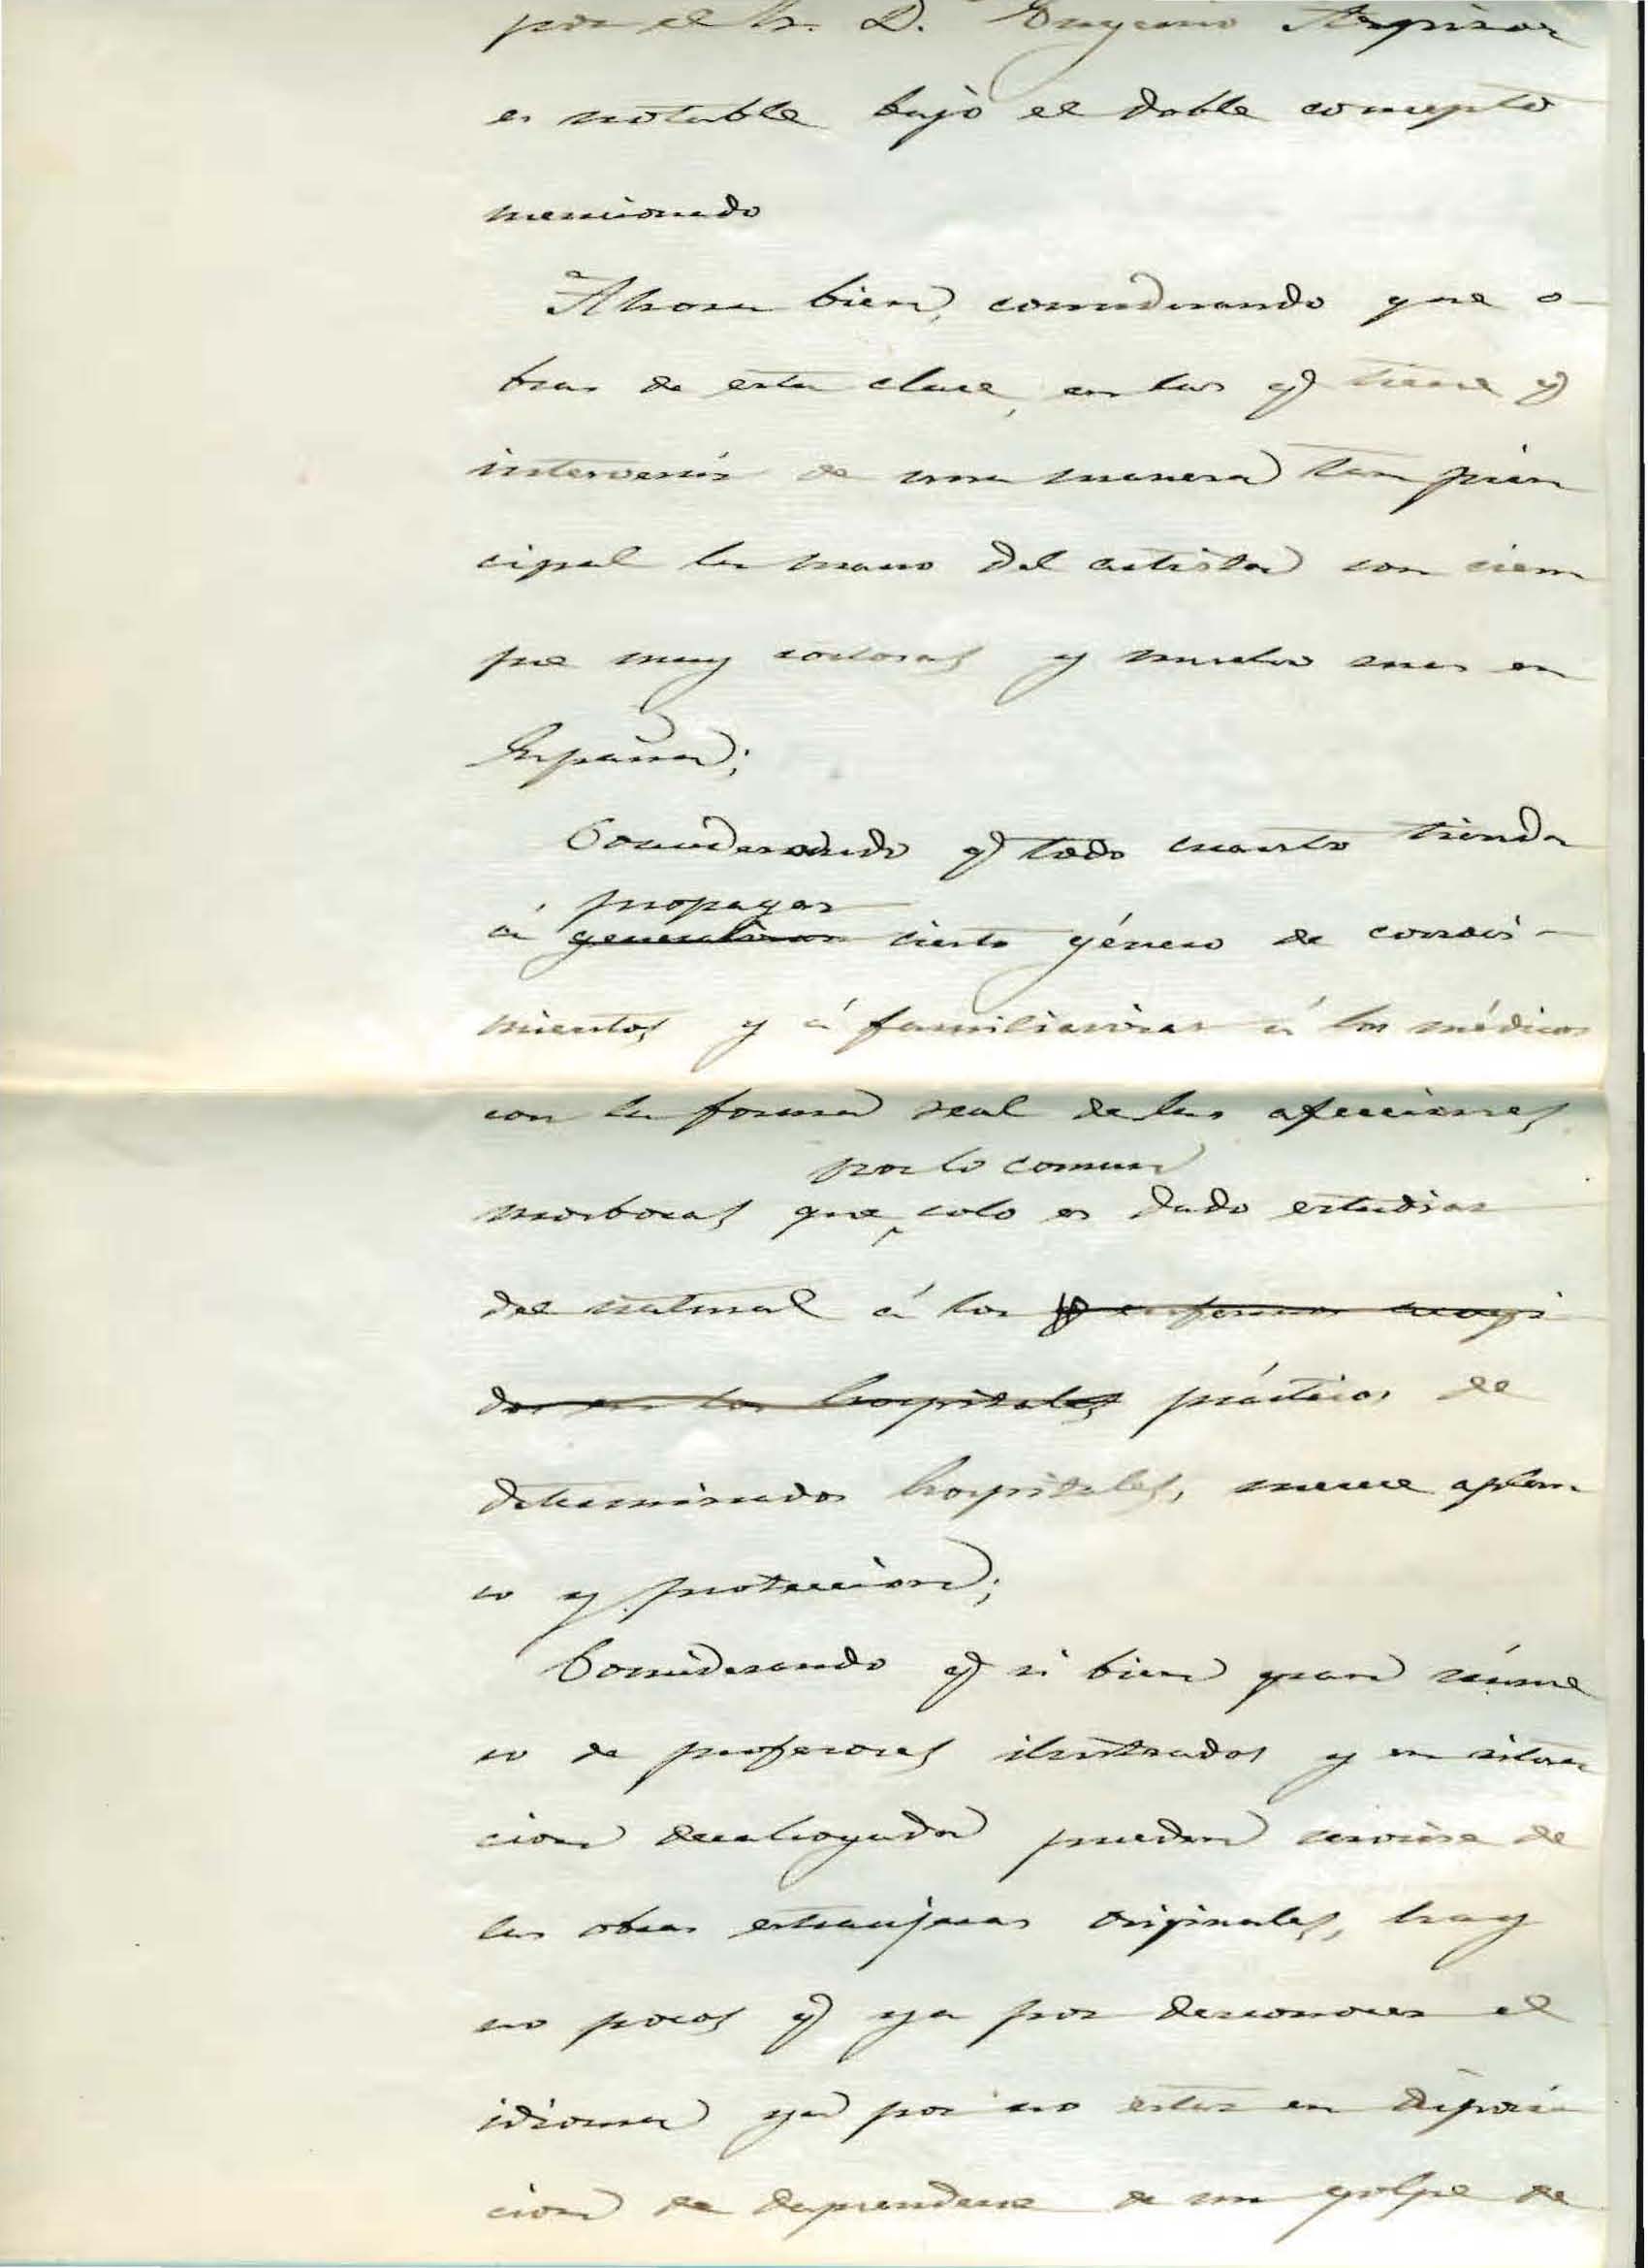 por el Sr. D. Eugenio
es notable bajo el doble concepto
mencionado
Ahora bien, considerando que o-
bras de esta clase, en las q̃ tiene q̃
intervenir de una manera tan prin
cipal la mano del artista son siem
pre muy costosas y mucho mas en
España;
Considerando q̃ todo cuanto tienda
propagar
á generalizar cierto género de conoci-
mientos y á familiarizar á los médicos
con la forma real de las afecciones
por lo comun
morbosas que solo es dado estudiar
del natural á los enfermos acogi
dos en los hospitales prácticos de
determinados hospitales, merece aplau-
so y proteccion;
Considerando q̃ si bien gran núme
ro de profesores ilustrados y en situa
cion desahogada pueden servirse de
las obras estranjeras originales, hay
no pocos q̃ ya por desconocer el
idioma ya por no estar en disposi
cion de desprenderse de un golpe de